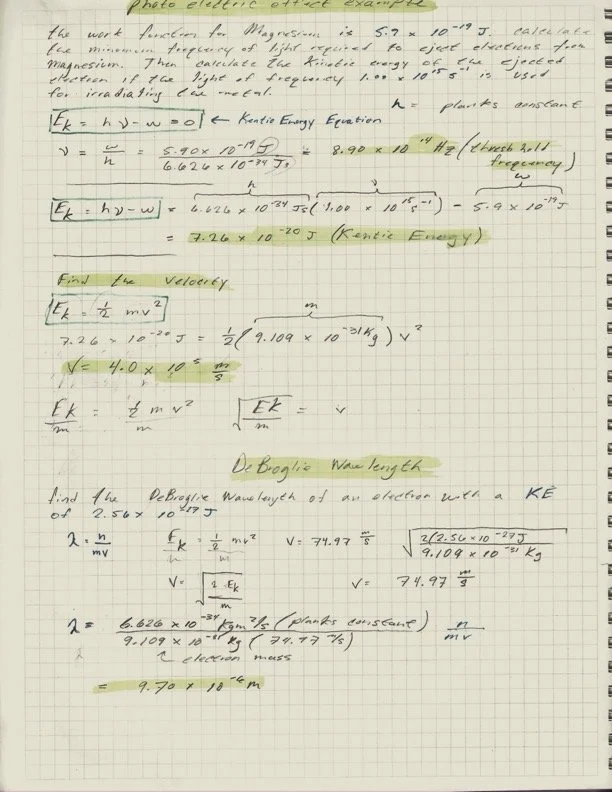 photo electric effect example
the work function for Magnesium is 5.9 x 10⁻¹⁹ J. calculate
the minimum frequency of light required to eject electrons from
Magnesium. Then calculate the Kinetic energy of the ejected
electron if the light of frequency 1.00 x 10¹⁵ s⁻¹ is used
for irradiating the metal.
h = planks constant
Ek = hν - w = 0 ← Kentic Energy Equation
ν = w/h = 5.90 x 10⁻¹⁹ J / 6.626 x 10⁻³⁴ Js = 8.90 x 10¹⁴ Hz (thresh hold
frequency)
h ν w
Ek = hν - w = 6.626 x 10⁻³⁴ Js (1.00 x 10¹⁵ s⁻¹) - 5.9 x 10⁻¹⁹ J
= 7.26 x 10⁻²⁰ J (Kentic Energy)
Find the Velocity
Ek = ½ mv²
m
7.26 x 10⁻²⁰ J = ½ (9.109 x 10⁻³¹ Kg) v²
V = 4.0 x 10⁵ m/s
Ek/m = ½ m v²/m √(Ek/m) = v
DeBroglie Wavelength
find the DeBroglie Wavelength of an electron with a KE
of 2.56 x 10⁻²⁷ J
λ = h/mv Ek/m = ½ mv²/m V = 74.97 m/s √(2(2.56 x 10⁻²⁷ J / 9.109 x 10⁻³¹ Kg)
V = √(2 Ek/m) V = 74.97 m/s
λ = 6.626 x 10⁻³⁴ Kgm²/s (planks constant) / 9.109 x 10⁻³¹ Kg (74.97 m/s) h/mv
electron mass
= 9.70 x 10⁻⁶ m